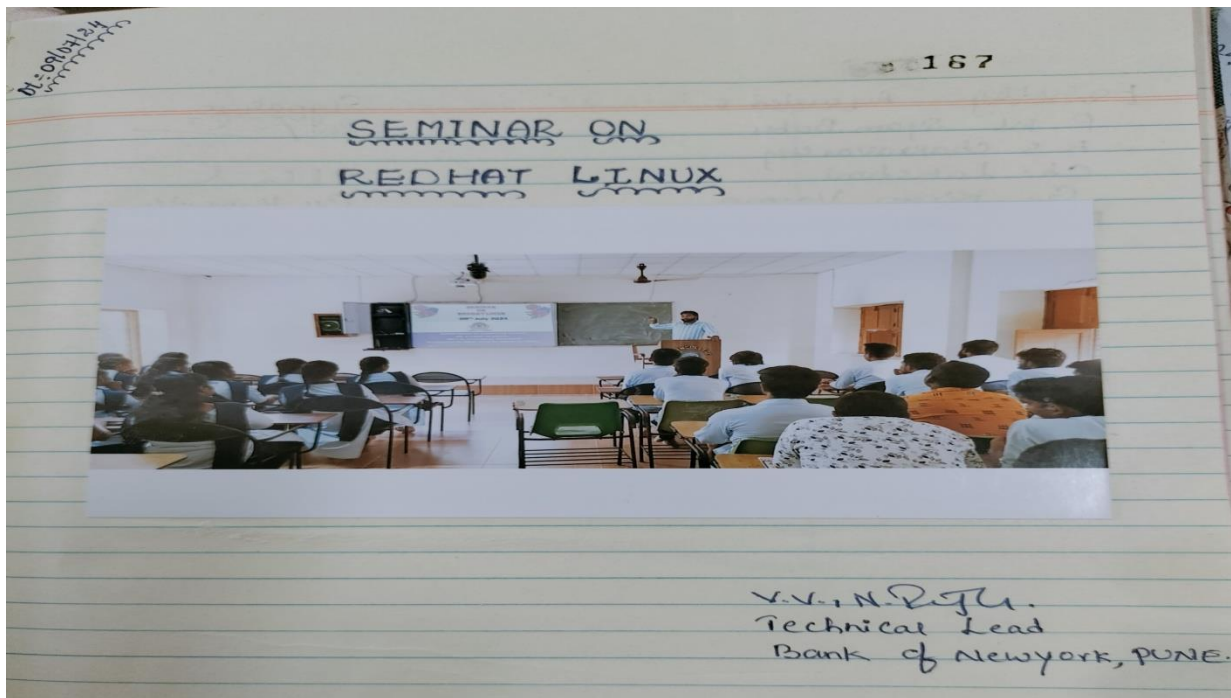 Dt:-09/07/24
167
SEMINAR ON
REDHAT LINUX
V.V.N.
Technical Lead
Bank of Newyork, PUNE.